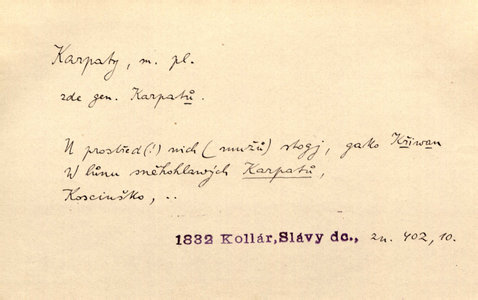 Karpaty, m. pl.
zde gen. Karpatů.
U prostřed(!) nich (mužů) stogj, gako Křiwan
W lůnu sněhohlawých Karpatů,
Kosciuško, ..
1832 Kollár, Slávy dc., zn. 402, 10.